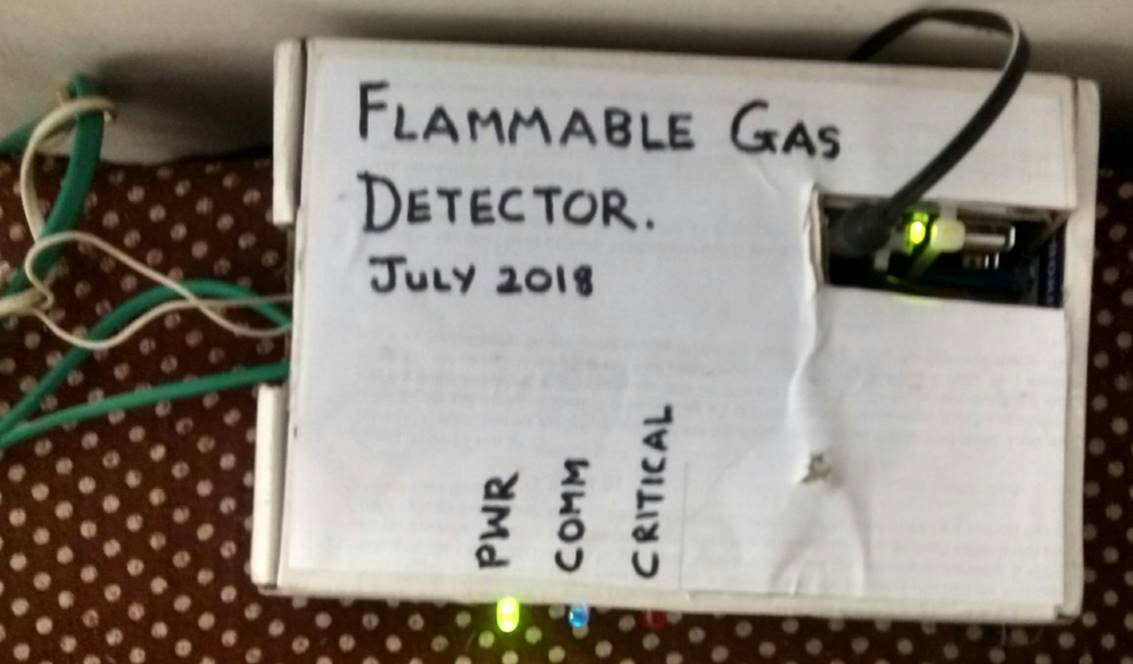 FLAMMABLE GAS
DETECTOR.
JULY 2018
PWR
COMM
CRITICAL